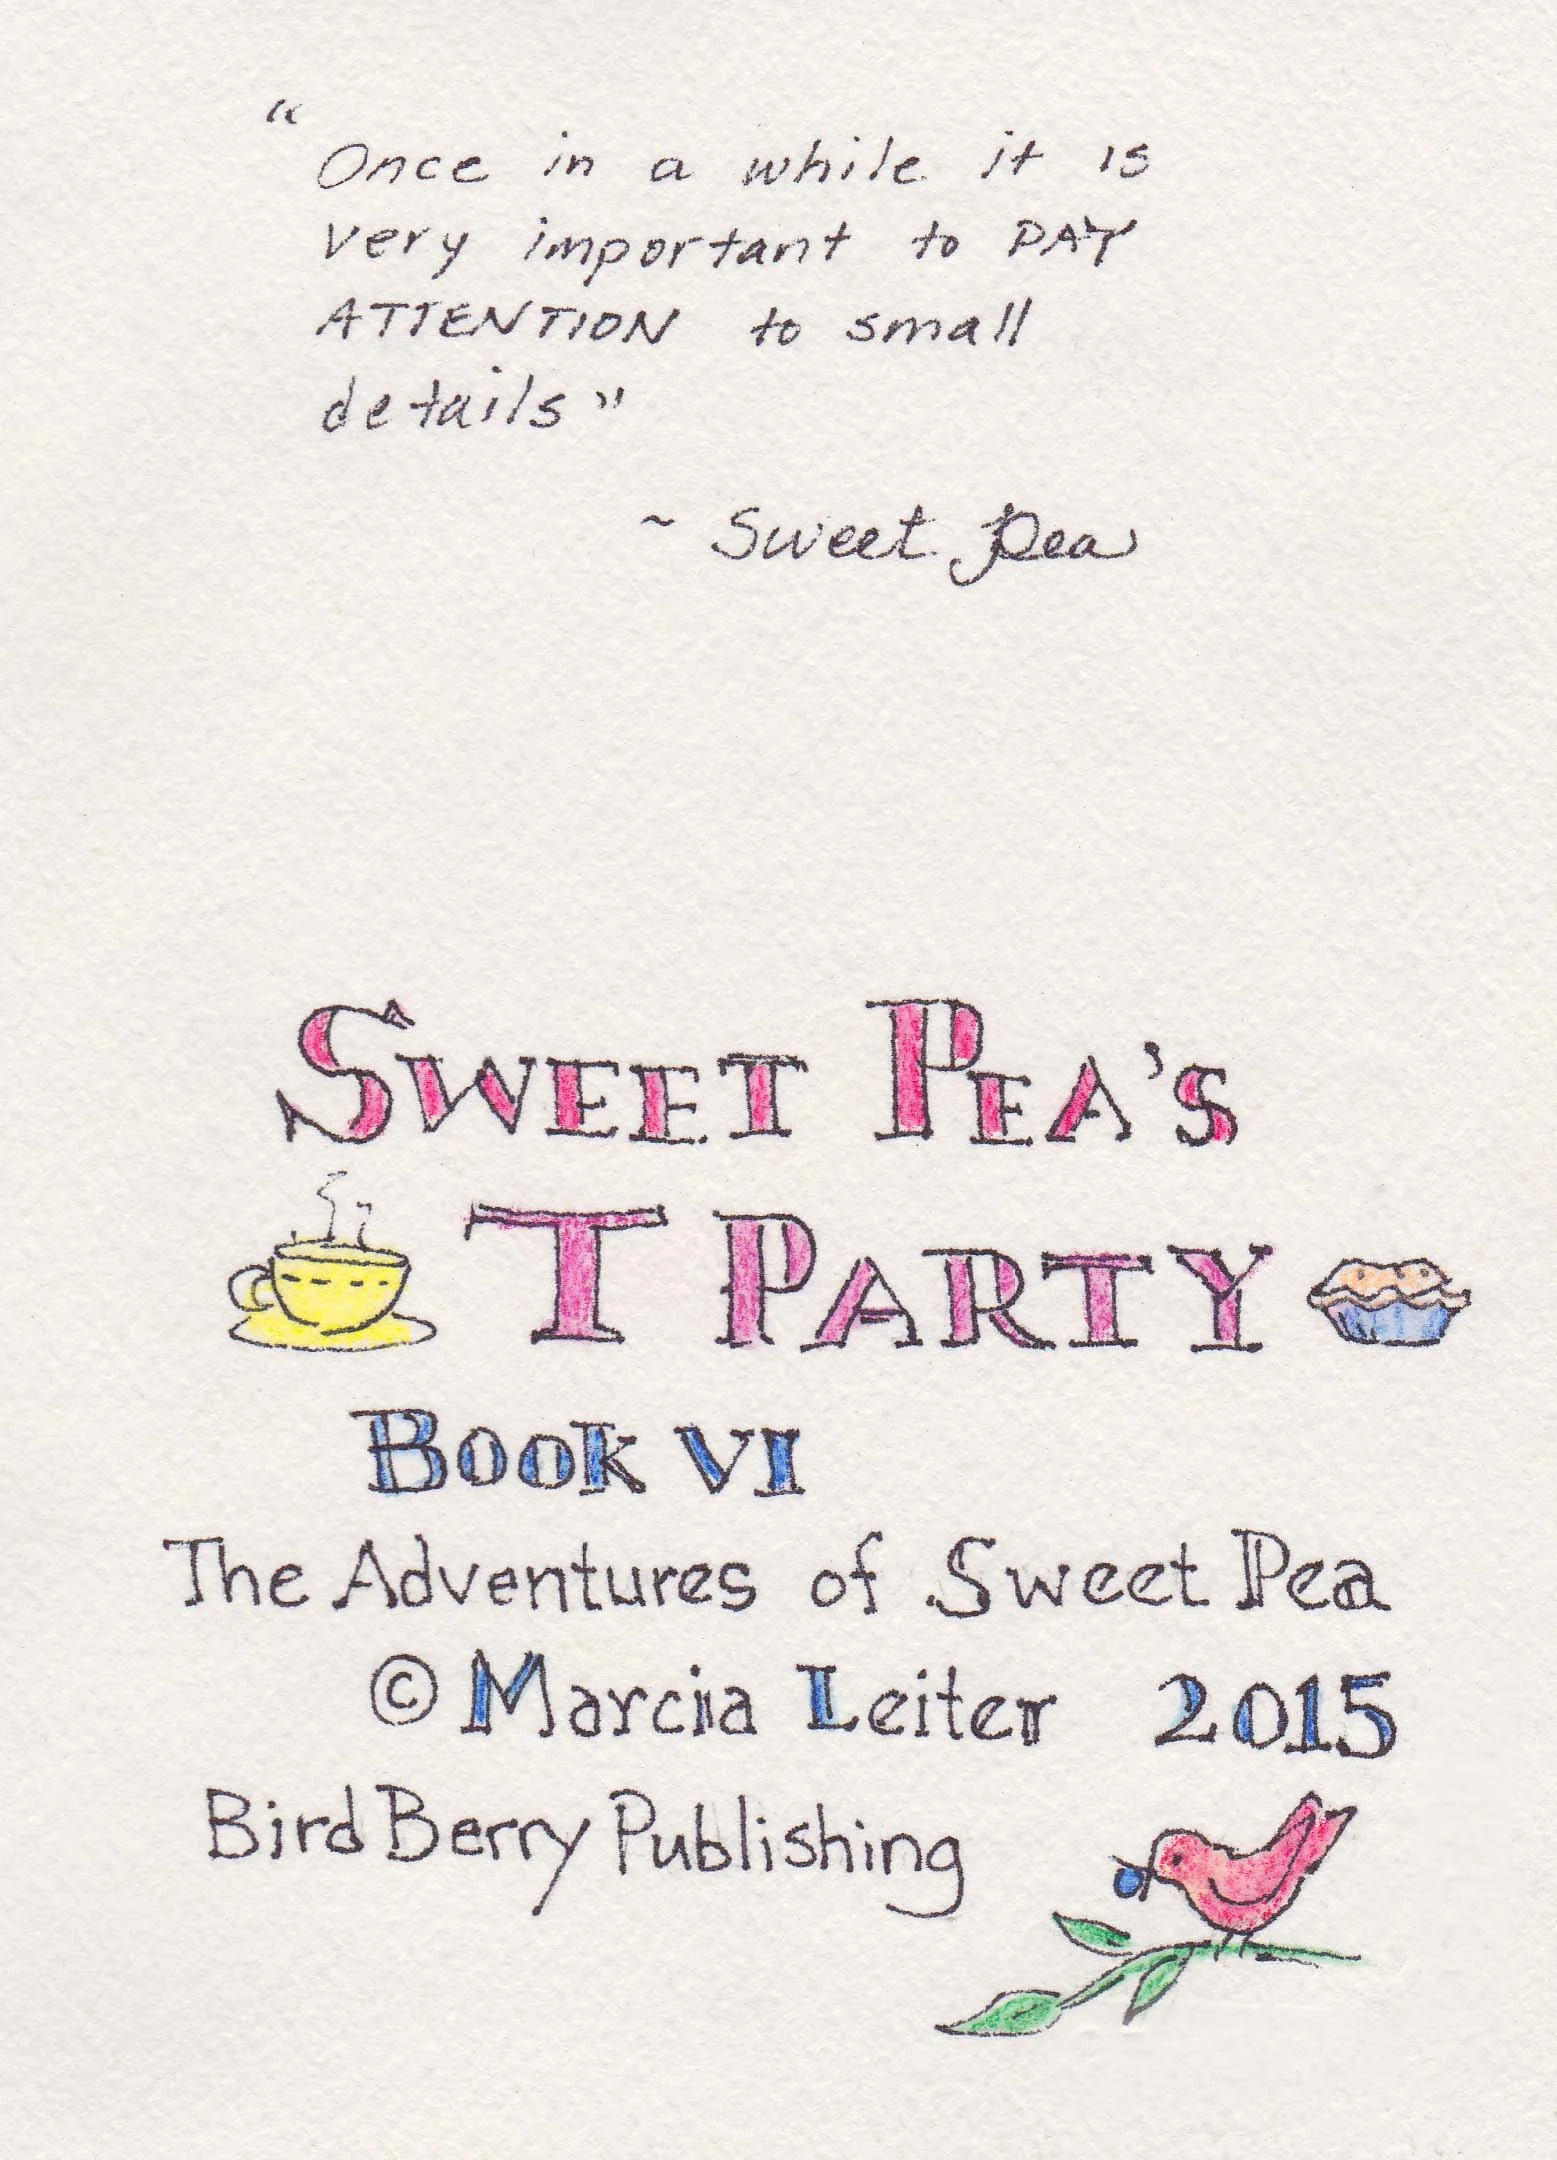 “Once in a while it is
very important to PAY
ATTENTION to small
details”
~ Sweet Pea
SWEET PEA'S
T PARTY
BOOK VI
The Adventures of Sweet Pea
© Marcia Leiter 2015
Bird Berry Publishing